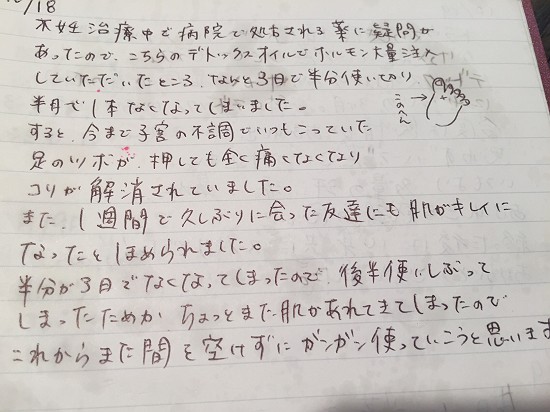 /18
不妊治療中で病院で処方される薬に疑問が
あったので、こちらのデトックスオイルでホルモン大量注入
していただいたところ、なんと3日で半分使いきり
半月で1本なくなってしまいました。
すると、今まで子宮の不調でいつもこっていた
足のツボが、押しても全く痛くなくなり
コリが解消されていました。
このへん
また、1週間で久しぶりに会った友達にも肌がキレイに
なったとほめられました。
半分が3日でなくなってしまったので、後半使いしぶって
しまったためか、ちょっとまた肌があれてきてしまったので
これからまた間を空けずにガンガン使っていこうと思います